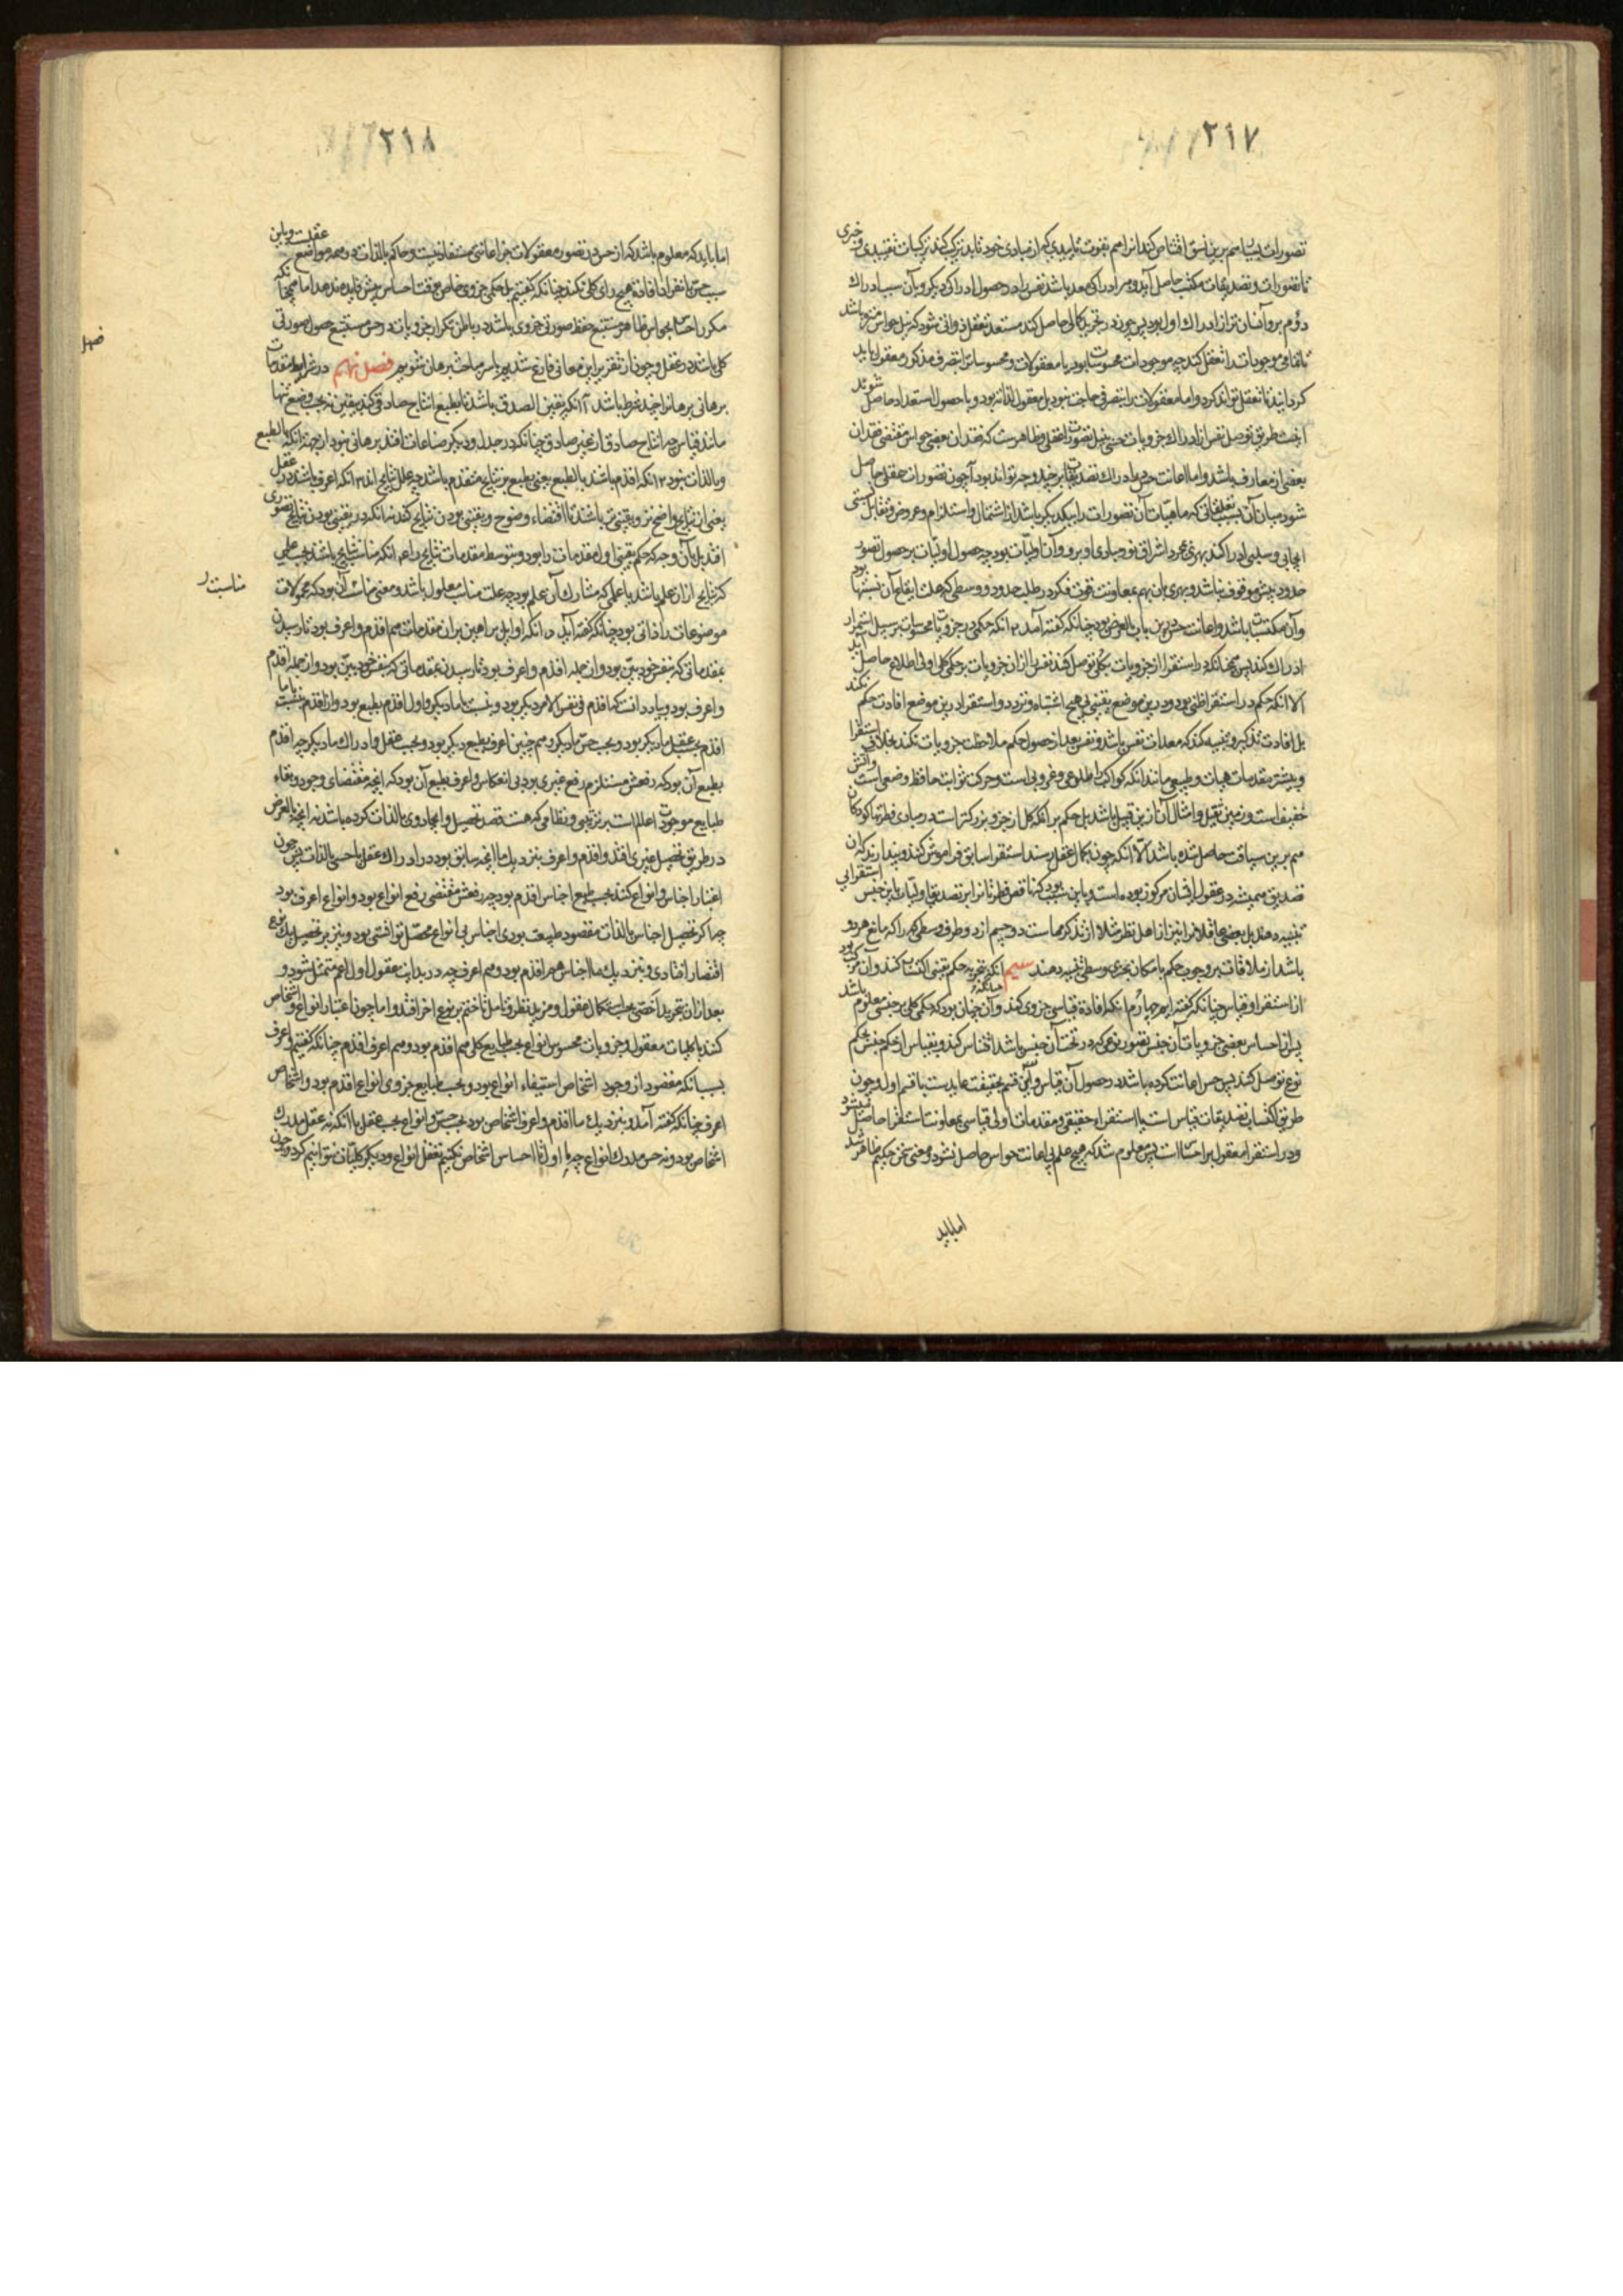 ۲۱۷
تصورات بسایط هم برین نسق اقتناص کند آنرا هم بقوت تأییدی که از مبادی خود یابد ترکیب کند ترکیبات تقییدی و خبری
تا تصورات و تصدیقات مکتسب حاصل آید و هر ادراکی معد باشد نفس را در حصول ادراکی دیگر و بآن سبب ادراک
دوم بر وآسان تر از ادراک اول بود پس چون در تجرید کمالی حاصل کند مستعد تعقل ذواتی شود که نیل حواس منزه باشد
تا تمامی موجودات را تعقل کند چه موجودات محسوسات بود یا معقولات و محسوسات را بتصرف مذکور معقول باید
گردانید تا تعقل تواند کرد و اما معقولات را بتصرفی حاجت نبود بل معقول لذاته بود و با حصول استعداد حاصل شوند
اینست طریق توصل نفس از ادراک جزویات حسی بنیل تصورات عقلی و ظاهرست که فقدان بعضی حواس مقتضی فقدان
بعضی از معارف باشد و اما اعانت حس در ادراک تصدیقات بر چند وجه تواند بود آ چون تصورات عقلی حاصل
شود میان آن بسبب تعلقاتی که ماهیات آن تصورات را بیکدیگر باشد از اشتمال و استلزام و عروض و تقابل نسبتی
ایجابی و سلبی ادراک کند بهری بمجرد اشراق نور مبادی او برو و آن اولیات بود چه حصول اولیات بر حصول تصور
حدود بیش موقوف نباشد و بهری بآن بهم بمعاونت قوت فکر در طلب حدود وسطی که علت ایقاع آن نسبتها بود
و آن مکتسبات باشد و اعانت حس درین باب بالعرض بود چنانکه گفته آمد ۲ آنکه حکمی در جزویات محسوسات بر سبیل استمرار
ادراک کند پس همچنانکه در استقرا از جزویات بکلی توصل کنند نفس را از آن جزویات بر حکمی کلی اولی اطلاع حاصل آید
الا آنکه حکم در استقرا ظنی بود و درین موضع یقینی بی هیچ اشتباه و تردد و استقرا درین موضع افادت حکم نکند
بل افادت تذکیر و تنبیه کند که معدات نفس باشد و نفس بعد از حصول حکم ملاحظت جزویات نکند بخلاف استقرا
و بیشتر مقدمات هیأت و طبیعی مانند آنکه کواکب را طلوعی و غروبی است و حرکت ثوابت حافظ وضعی است و آتش
خفیف است و زمین ثقیل و امثال آن ازین قبیل باشد بل حکم بر آنکه کل از جزو بزرگتر است در مبادی فطرتها کودکان
هم برین سیاقت حاصل شده باشد الا آنکه چون بکمال عقل رسند استقرا سابق فراموش کنند و پندارند که آن
تصدیق همیشه در عقول ایشان مرکوز بوده است و باین سبب بود که ناقص فطرتانرا بر تصدیق اولیات باین جنس استقرایی
تنبیه دهند بل بعضی عاقلانرا نیز از اهل نظر مثلا از تذکر مماست دو جسم از دو طرف وسطی که را که مانع هر دو
باشد از ملاقات بر وجوب حکم بامکان تجزی وسطی تنبیه دهند سیم آنکه بتجربه حکم یقینی اکتساب کند و آن مرکب بود
از استقرا و قیاس چنانکه گفته ایم چهارم آنکه افادة قیاسی جزوی کند و آن چنان بود که حکمی کلی بر جنسی معلوم باشد
پس از احساس بعضی جزویات آن جنس تصور نوعی که در تحت آن جنس باشد اقتناص کند و بقیاس از حکم جنس بحکم
نوع توصل کند پس حس اعانت کرده باشد در حصول آن قیاس و این قسم بحقیقت عایدست با قسم اول و چون
طریق اکتساب تصدیقات قیاس است یا استقرا و حقیقی و مقدمات اولی قیاسی بمعاونت استقرا حاصل میشود
و در استقرا معقول بر احساس است پس معلوم شد که هیچ علم بی اعانت حواس حاصل نشود و معنی سخن حکیم ظاهر شد
اما باید
۲۱۸
اما باید که معلوم باشد که از حس در تصور معقولات جز اعانتی مستفاد نیست و حاکم بالذات در همه مواضع عقلست و باین
سبب حس بانفراد افادة هیچ رای کلی نکند چنانکه گفتیم بل حکمی جزوی خاص بوقت احساس بیش فایده ندهد اما همچنانکه
مکرر احساس بحواس ظاهر مستتبع حفظ صورتی جزوی باشد در باطن تکرار جزویات در حس مستتبع حصول صورتی
کلی باشد در عقل و چون از تقریر این معانی فارغ شدیم باسر مباحث برهان شویم فصل نهم در شرایط مقدمات
برهانی برهانرا چند شرط باشد آ آنکه یقینی الصدق باشد تا بطبع انتاج صادق کند بیقین نه بحسب وضع تنها
مانند قیاس چه انتاج صادق از غیر صادق چنانکه در جدل و دیگر صناعات افتد برهانی نبود از جهت آنکه بالطبع
و بالذات نبود ۲ آنکه اقدم باشد بالطبع یعنی بطبع بر نتایج متقدم باشد چه علل نتایج اند ۳ آنکه اعرف باشد در عقل
یعنی از نتایج واضح تر و یقینی تر باشد تا اقتضاء وضوح و یقینی بودن نتایج کند نه آنکه در یقینی بودن نتایج تصوری
افتد بل بآن وجه که حکم یقینی اول مقدمات را بود و بتوسط مقدمات نتایج را ۴ آنکه مناسب نتایج باشند بحسب علمی
که نتایج از آن علم باشد یا علمی که مشارک آن علم بود چه علت مناسب معلول باشد و معنی مناسبت آن بود که محمولات
موضوعات را ذاتی بود چنانکه گفته آید ۵ آنکه اوایل براهین بر آن مقدمات هم اقدم و اعرف بود تا رسیدن
بمقدماتی که بنفس خود بین بود و از جمله اقدم و اعرف بود تا رسیدن بمقدماتی که بنفس خود بین بود و از جمله اقدم
و اعرف بود و بباید دانست که اقدم فی نفس الامر دیگر بود و بنسبت با ما دیگر و اول اقدم بطبع بود و از اقدم بنسبت با ما
اقدم بحسب عقل ما دیگر بود و بحسب حس ما دیگر و هم چنین اعرف بطبع دیگر بود و بحسب عقل و ادراک ما دیگر چه اقدم
بطبع آن بود که رفعش مستلزم رفع غیری بود بی انعکاس و اعرف بطبع آن بود که آنچه مقتضای وجود و بقاء
طبایع موجودات اعالم است بر ترتیبی و نظامی که هست قصد تحصیل و ایجاد وی بالذات کرده باشد نه آنچه بالعرض
در طریق تحصیل غیری افتد و اقدم و اعرف بنزدیک ما آنچه سابق بود در ادراک عقل یا حسی بالذات پس چون
اعتبار اجناس و انواع کنند بحسب طبع اجناس اقدم بود چه رفعش مقتضی رفع انواع بود و انواع اعرف بود
چه اگر تحصیل اجناس بالذات مقصود طبیعت بودی اجناس بی انواع محصل توانستی بود و نیز بر تحصیل یک نوع
اقتصار افتادی و بنزدیک ما اجناس هم اقدم بود و هم اعرف چه در بدایت عقول اول اعم متمثل شود و
بعد از آن بتجرید اخص بحسب استکمال عقول و مزید نظر و تامل تا ختم بر نوع اخر افتد و اما چون اعتبار انواع و اشخاص
کنند با کلیات معقول و جزویات محسوس انواع بحسب طبایع کلی هم اقدم بود و هم اعرف اقدم چنانکه گفتیم و اعرف
بسبب آنکه مقصود از وجود اشخاص استیفاء انواع بود و بحسب طبایع جزوی انواع اقدم بود و اشخاص
اعرف چنانکه گفته آمد و بنزدیک ما اقدم و اعرف اشخاص بود بحسب حس و انواع بحسب عقل با آنکه نه عقل مدرک
اشخاص بود و نه حس مدرک انواع چه ما اولا تا احساس اشخاص نکنیم تعقل انواع و دیگر کلیات نتوانیم کرد و چون
مناسبت